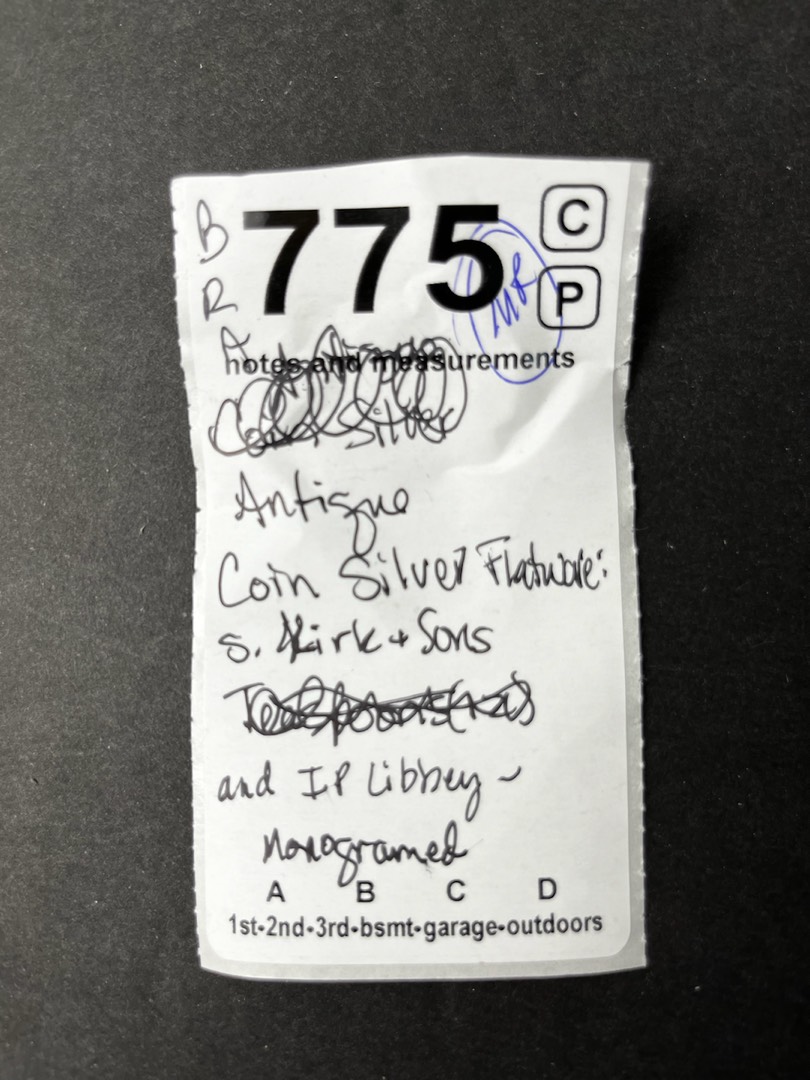 B 775 C
R MR P
notes and measurements
Coin Silver
Antique
Coin Silver Flatware:
S. Kirk + Sons
and IP Libbey -
Monogramed
A B C D
1st-2nd-3rd-bsmt-garage-outdoors